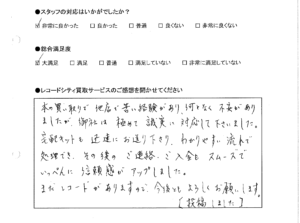 ●スタッフの対応はいかがでしたか？
☑ 非常に良かった □ 良かった □ 普通 □ 良くない □ 非常に良くない
●総合満足度
☑ 大満足 □ 満足 □ 普通 □ 満足していない □ 非常に満足していない
●レコードシティ買取サービスのご感想を聞かせてください
本の買い取りで他店で苦い経験があり、何となく不安があり
ましたが、御社は極めて誠実に対応して下さいました。
宅配キットも迅速にお送り下さり、わかりやすい流れで
処理でき、その後のご連絡、ご入金もスムーズで
いっぺんに信頼感がアップしました。
まだレコードがありますので、今後ともよろしくお願いします。
【投稿しました】